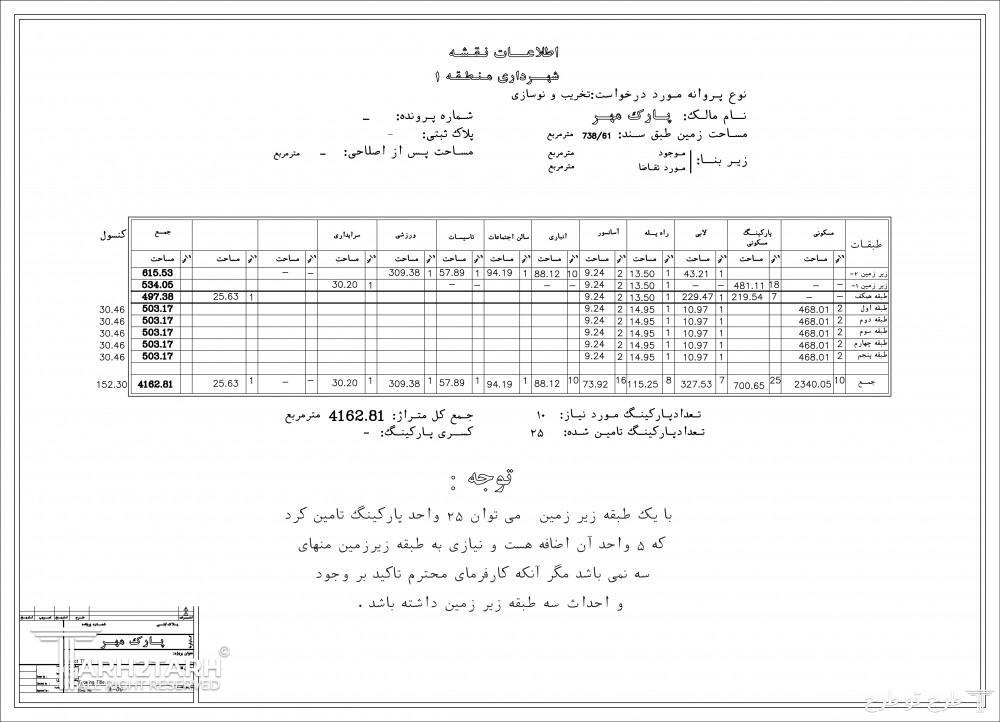 اطلاعات نقشه
شهرداری منطقه ۱
نوع پروانه مورد درخواست:تخریب و نوسازی
نام مالک: پارک مهر
شماره پرونده: _
مساحت زمین طبق سند: 738/61 مترمربع
پلاک ثبتی: -
مساحت پس از اصلاحی: - مترمربع
زیر بنا: موجود مترمربع
مورد تقاضا مترمربع
طبقات مسکونی پارکینگ مسکونی لابی راه پله آسانسور انباری سالن اجتماعات تاسیسات ورزشی سرایداری جمع کنسول
مساحت مساحت مساحت مساحت مساحت مساحت مساحت مساحت مساحت مساحت مساحت مساحت مساحت
زیر زمین ۲- 1 43.21 1 13.50 2 9.24 10 88.12 1 94.19 1 57.89 1 309.38 – – 615.53
زیر زمین ۱- – – 18 481.11 – – 1 13.50 2 9.24 – – – – 1 30.20 534.05
طبقه همکف – – 7 219.54 1 229.47 1 13.50 2 9.24 1 25.63 497.38
طبقه اول 2 468.01 1 10.97 1 14.95 2 9.24 503.17 30.46
طبقه دوم 2 468.01 1 10.97 1 14.95 2 9.24 503.17 30.46
طبقه سوم 2 468.01 1 10.97 1 14.95 2 9.24 503.17 30.46
طبقه چهارم 2 468.01 1 10.97 1 14.95 2 9.24 503.17 30.46
طبقه پنجم 2 468.01 1 10.97 1 14.95 2 9.24 503.17 30.46
جمع 10 2340.05 25 700.65 7 327.53 8 115.25 16 73.92 10 88.12 1 94.19 1 57.89 1 309.38 1 30.20 – – 1 25.63 4162.81 152.30
تعدادپارکینگ مورد نیاز: ۱۰
جمع کل متراژ: 4162.81 مترمربع
تعدادپارکینگ تامین شده: ۲۵
کسری پارکینگ: -
توجه :
با یک طبقه زیر زمین می توان ۲۵ واحد پارکینگ تامین کرد
که ۵ واحد آن اضافه هست و نیازی به طبقه زیرزمین منهای
سه نمی باشد مگر آنکه کارفرمای محترم تاکید بر وجود
و احداث سه طبقه زیر زمین داشته باشد .
پارک مهر
TARH2TARH ©
ALL RIGHT RESERVED
طرح تو طرح